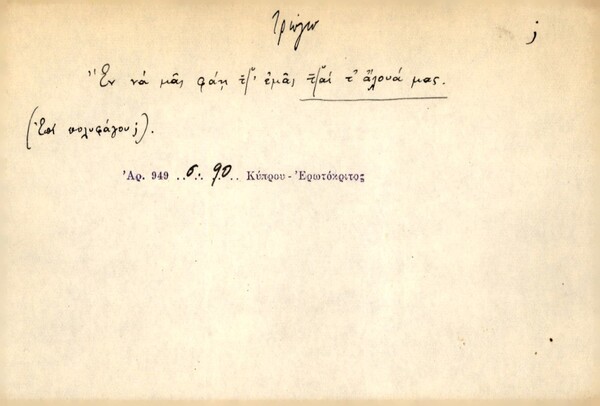 Τρώγω
;
Ἔν νά μᾶς φάῃ τζ̌' ἐμᾶς τζ̌αί τ' ἄλουά μας.
(Ἐπί πολυφάγου;).
Ἀρ. 949 σ. 90 Κύπρου - Ἐρωτόκριτος